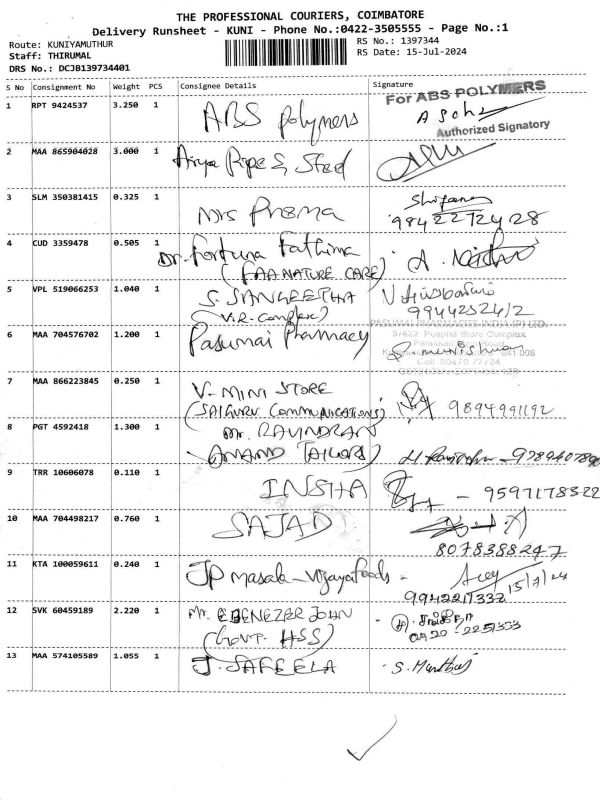 THE PROFESSIONAL COURIERS, COIMBATORE
Delivery Runsheet - KUNI - Phone No.:0422-3505555 - Page No.:1
Route: KUNIYAMUTHUR
RS No.: 1397344
Staff: THIRUMAL
RS Date: 15-Jul-2024
DRS No.: DCJB139734401
S No Consignment No Weight PCS Consignee Details Signature
For ABS POLYMERS
1 RPT 9424537 3.250 1 ABS Polymers
Authorized Signatory
2 MAA 865904028 3.000 1 Pipe & Steel
3 SLM 350381415 0.325 1 Mrs Prema
9842272428
4 CUD 3359478 0.505 1 Dr. Fortuna Fathima
(FAA NATURE CARE)
5 VPL 519066253 1.040 1 S. SANGEETHA
(V.R. Complex)
6 MAA 704576702 1.200 1 Pasumai Pharmacy
7 MAA 866223845 0.250 1 V. MINI STORE
(SAIGURU COMMUNICATIONS) 9894991192
8 PGT 4592418 1.300 1 Mr. RAVINDRAN
(ANAND TAILORS)
9 TRR 10606078 0.110 1 INSHA - 9597178322
10 MAA 704498217 0.760 1 SAJAD
8078388247
11 KTA 100059611 0.240 1 JP masala - Vijaya foods -
9942217332 15/7/24
12 SVK 60459189 2.220 1 Mr. EBENEZER JOHN
(GOVT. HSS) 0420-2251333
13 MAA 574105589 1.055 1 J. SAFEELA